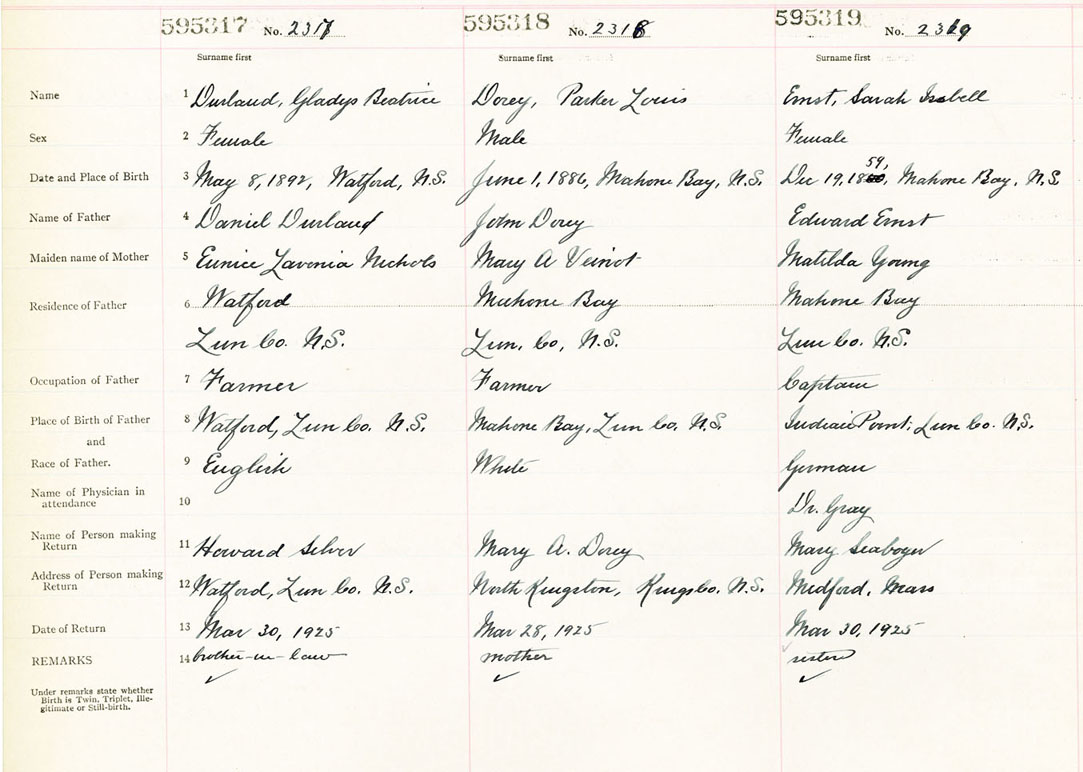 595317 No. 2317 595318 No. 2318 595319 No. 2319
Surname first Surname first Surname first
Name 1 Durland, Gladys Beatrice Dorey, Parker Louis Ernst, Sarah Isabell
Sex 2 Female Male Female
59,
Date and Place of Birth 3 May 8, 1892, Watford, N.S. June 1, 1886, Mahone Bay, N.S. Dec 19, 18 , Mahone Bay, N.S.
Name of Father 4 Daniel Durland John Dorey Edward Ernst
Maiden name of Mother 5 Eunice Lavenia Nichols Mary A Veinot Matilda Young
Residence of Father 6 Watford Mahone Bay Mahone Bay
Lun Co. N.S. Lun. Co, N.S. Lun Co. N.S.
Occupation of Father 7 Farmer Farmer Captain
Place of Birth of Father 8 Watford, Lun Co. N.S. Mahone Bay, Lun Co. N.S. Indian Point, Lun Co. N.S.
and
Race of Father. 9 English White German
Name of Physician in
attendance 10 Dr. Gray
Name of Person making
Return 11 Howard Silver Mary A. Dorey Mary Seaboyer
Address of Person making
Return 12 Watford, Lun Co. N.S. North Kingston, Kings Co. N.S. Medford, Mass
Date of Return 13 Mar 30, 1925 Mar 28, 1925 Mar 30, 1925
REMARKS 14 brother-in-law mother
Under remarks state whether
Birth is Twin, Triplet, Ille-
gitimate or Still-birth.